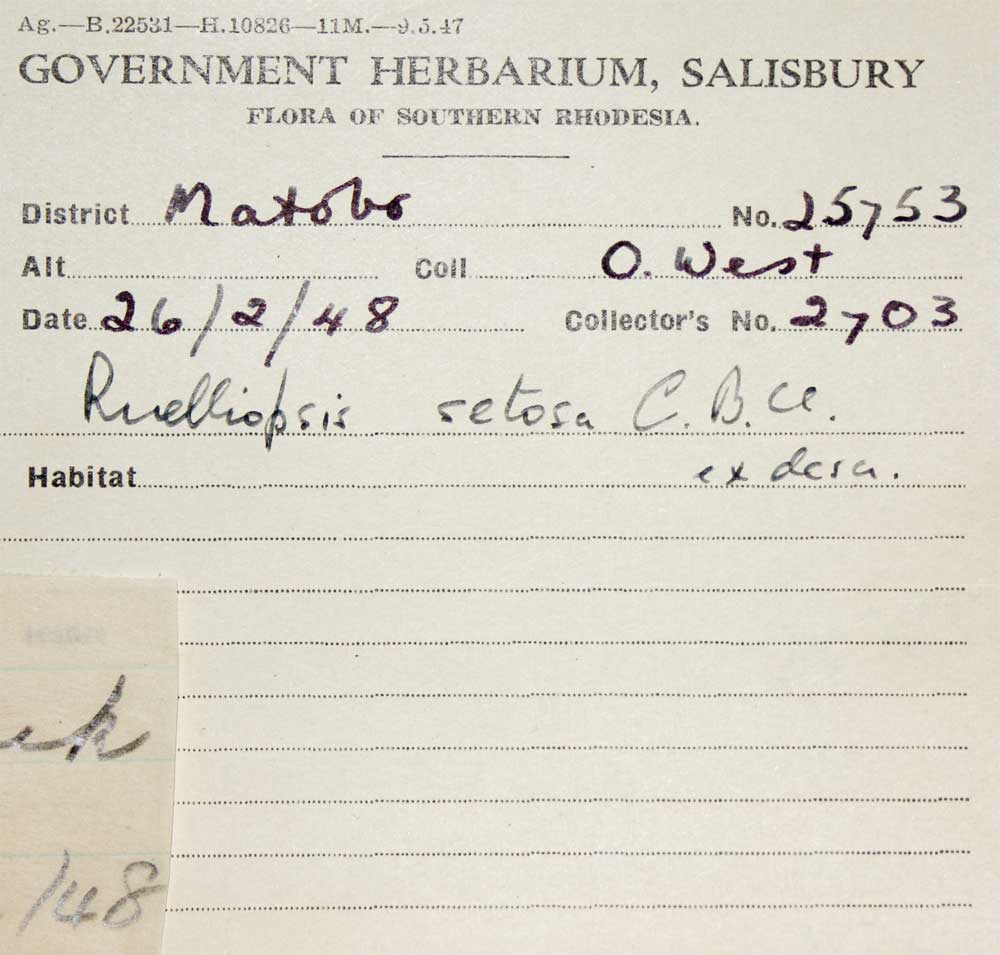 Ag.—B.22531—H.10826—11M.—9.5.47
GOVERNMENT HERBARIUM, SALISBURY
FLORA OF SOUTHERN RHODESIA.
District Matobo No. 25753
Alt Coll O. West
Date 26/2/48 Collector's No. 2703
Ruelliopsis setosa C.B.Cl.
Habitat ex descr.
/48